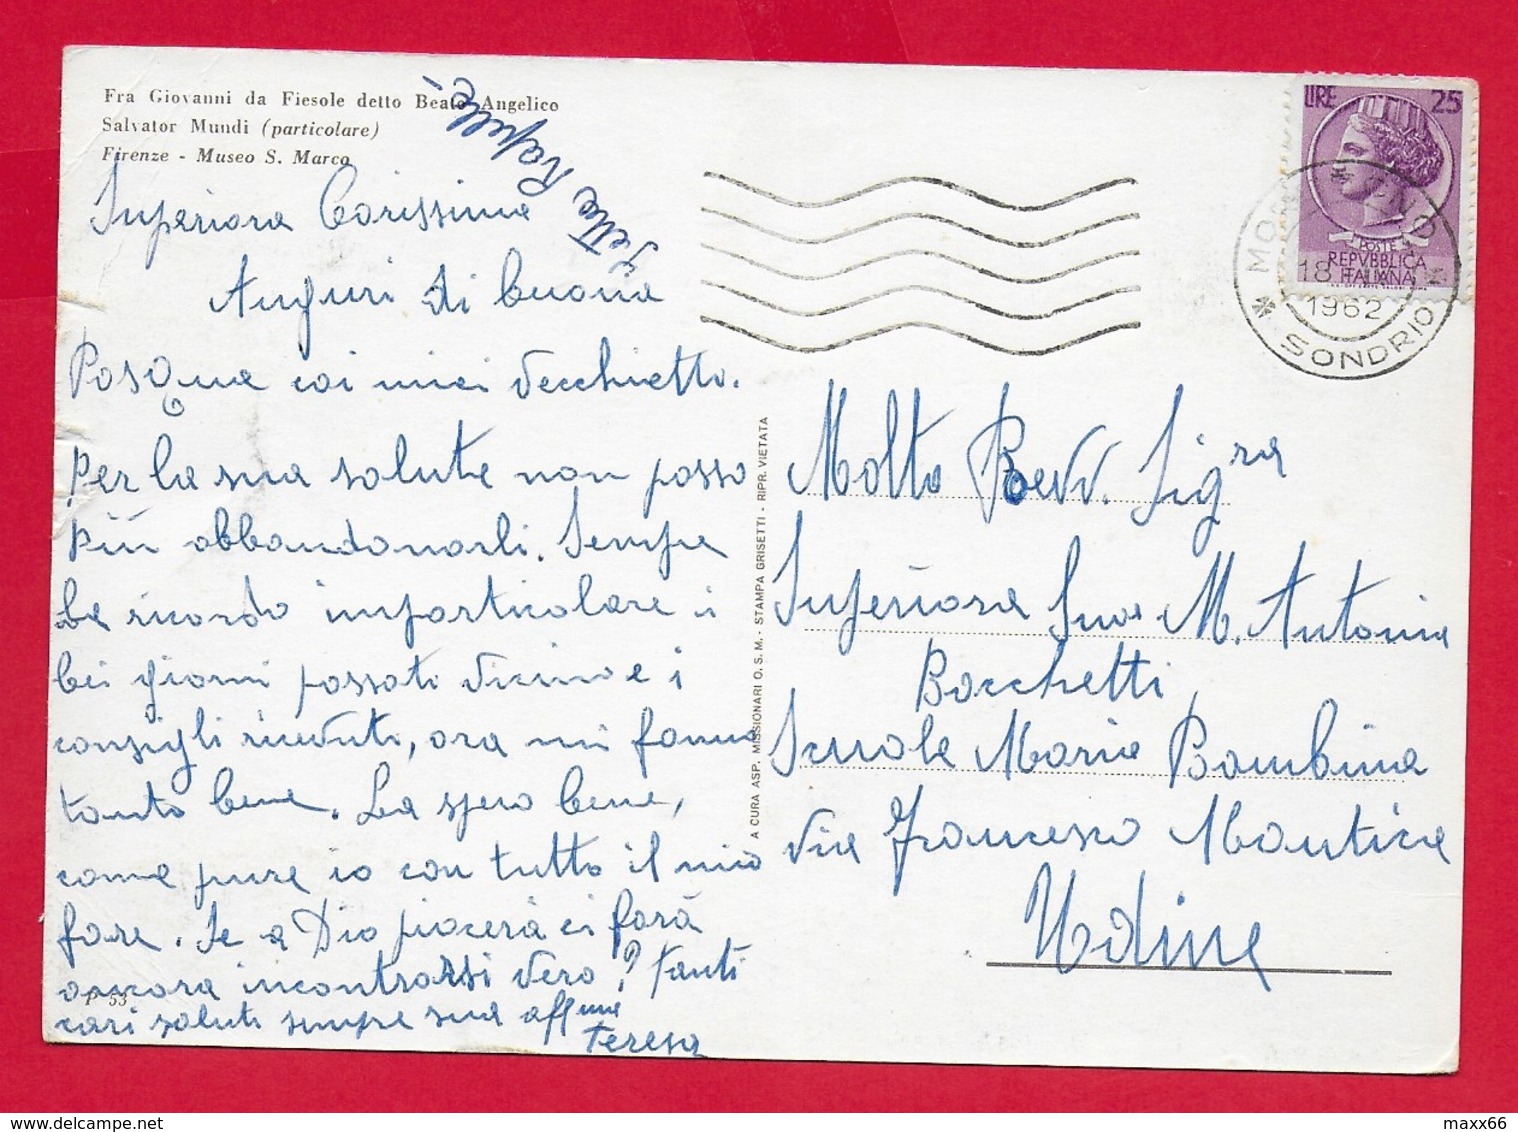 Fra Giovanni da Fiesole detto Beato Angelico
Salvator Mundi (particolare)
Firenze - Museo S. Marco
Superiora Carissima
Auguri di buona
Pasqua coi miei vecchietto.
Per la sua salute non posso
più abbandonarli. Sempre
La ricordo in particolare i
bei giorni passati vicino e i
consigli ricevuti, ora mi fanno
tanto bene. La spero bene,
come pure io con tutto il mio
fare. Se a Dio piacerà ci farà
ancora incontrarsi vero? tanti
cari saluti sempre sua aff.ma
Teresa
P 53
A CURA ASP. MISSIONARI O. S. M. - STAMPA GRISETTI - RIPR. VIETATA
LIRE 25
POSTE
REPVBBLICA
ITALIANA
18
1962
* SONDRIO
Molto Rev. Sig.ra
Superiora Suor M. Antonia
Bacchetti
Scuole Maria Bambina
Via Francesco Mantica
Udine
maxx66